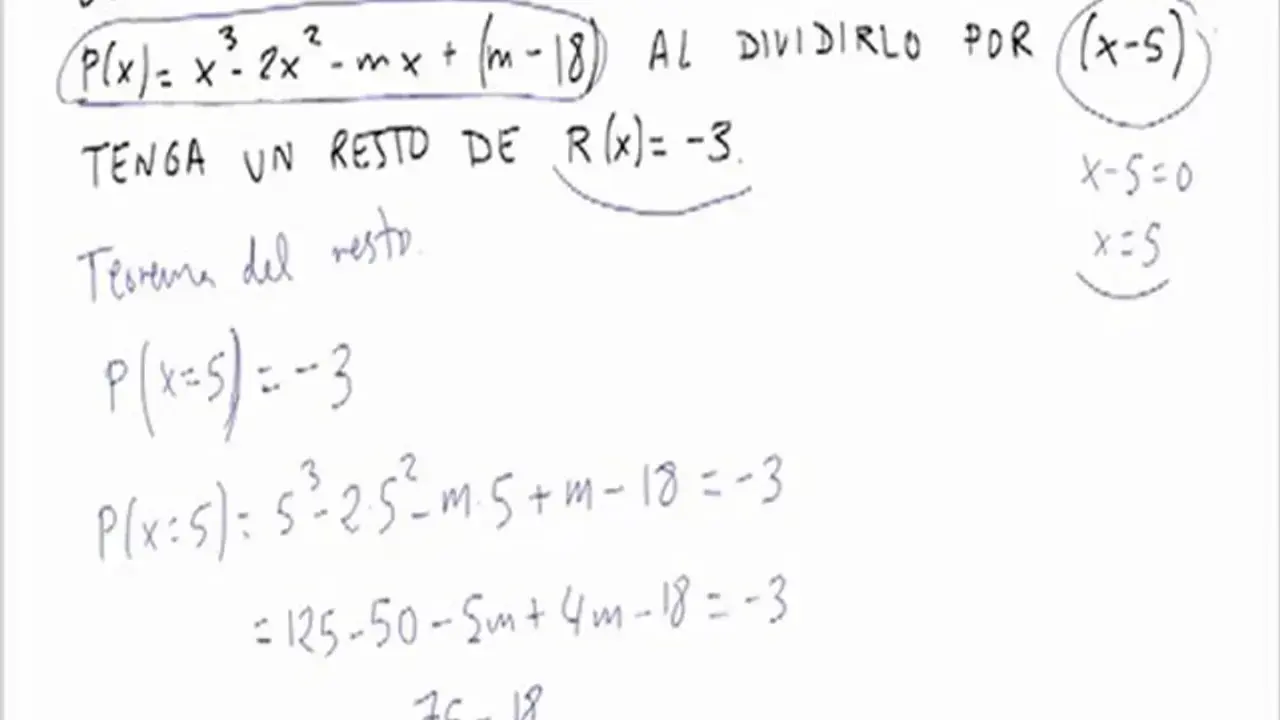 P(x)= x³-2x²-mx+(m-18) AL DIVIDIRLO POR (x-5)
TENGA UN RESTO DE R(x)= -3.
x-5=0
x=5
Teorema del resto.
P(x=5)=-3
P(x=5)= 5³-2·5²-m·5+m-18=-3
=125-50-5m+4m-18=-3
75-18